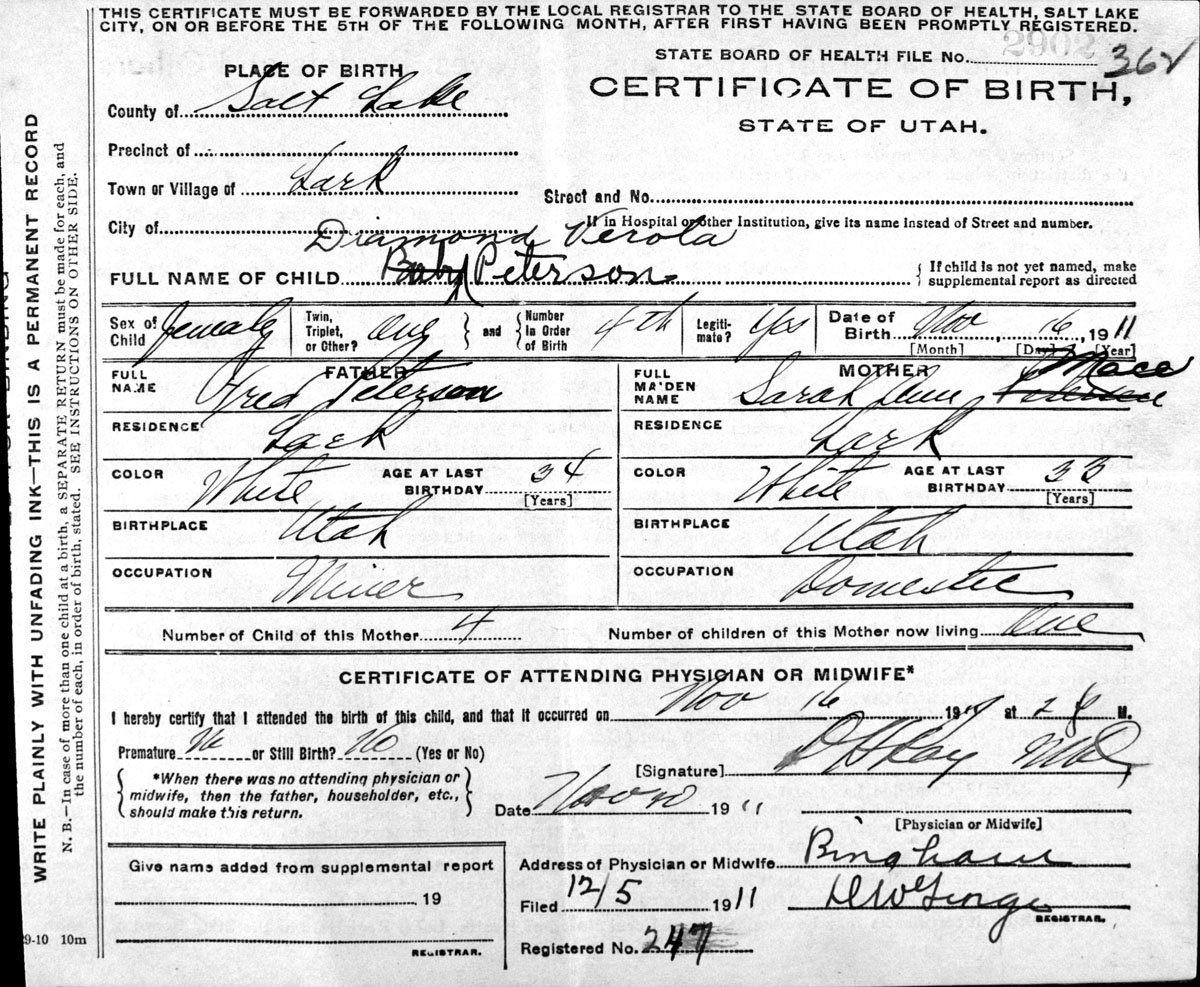 THIS CERTIFICATE MUST BE FORWARDED BY THE LOCAL REGISTRAR TO THE STATE BOARD OF HEALTH, SALT LAKE
CITY, ON OR BEFORE THE 5TH OF THE FOLLOWING MONTH, AFTER FIRST HAVING BEEN PROMPTLY REGISTERED.
2902
STATE BOARD OF HEALTH FILE No. 362
PLACE OF BIRTH
CERTIFICATE OF BIRTH,
County of Salt Lake
STATE OF UTAH.
Precinct of
Town or Village of Lark
Street and No.
City of
If in Hospital or other Institution, give its name instead of Street and number.
Diamond Verola
FULL NAME OF CHILD Baby Peterson
{ If child is not yet named, make
supplemental report as directed
Sex of Child Female
Twin, Triplet, or Other? One } and { Number in Order of Birth 4th
Legiti-mate? Yes
Date of Birth Nov 16, 1911
[Month] [Day] [Year]
FATHER
FULL NAME Fred Peterson
RESIDENCE Lark
COLOR White AGE AT LAST BIRTHDAY 34
[Years]
BIRTHPLACE Utah
OCCUPATION Miner
MOTHER
FULL MAIDEN NAME Sarah Ann Mace
RESIDENCE Lark
COLOR White AGE AT LAST BIRTHDAY 33
[Years]
BIRTHPLACE Utah
OCCUPATION Domestic
Number of Child of this Mother 4 Number of children of this Mother now living One
CERTIFICATE OF ATTENDING PHYSICIAN OR MIDWIFE*
I hereby certify that I attended the birth of this child, and that it occurred on Nov 16 19 at 2 M.
Premature No or Still Birth? No (Yes or No)
[Signature]
{ *When there was no attending physician or
midwife, then the father, householder, etc.,
should make this return. }
Date Nov 1911
[Physician or Midwife]
Give name added from supplemental report
19
REGISTRAR.
Address of Physician or Midwife Bingham
Filed 12/5 1911 D W George
REGISTRAR.
Registered No. 247
9-10 10m
WRITE PLAINLY WITH UNFADING INK—THIS IS A PERMANENT RECORD
N. B.—In case of more than one child at a birth, a SEPARATE RETURN must be made for each, and
the number of each, in order of birth, stated. SEE INSTRUCTIONS ON OTHER SIDE.